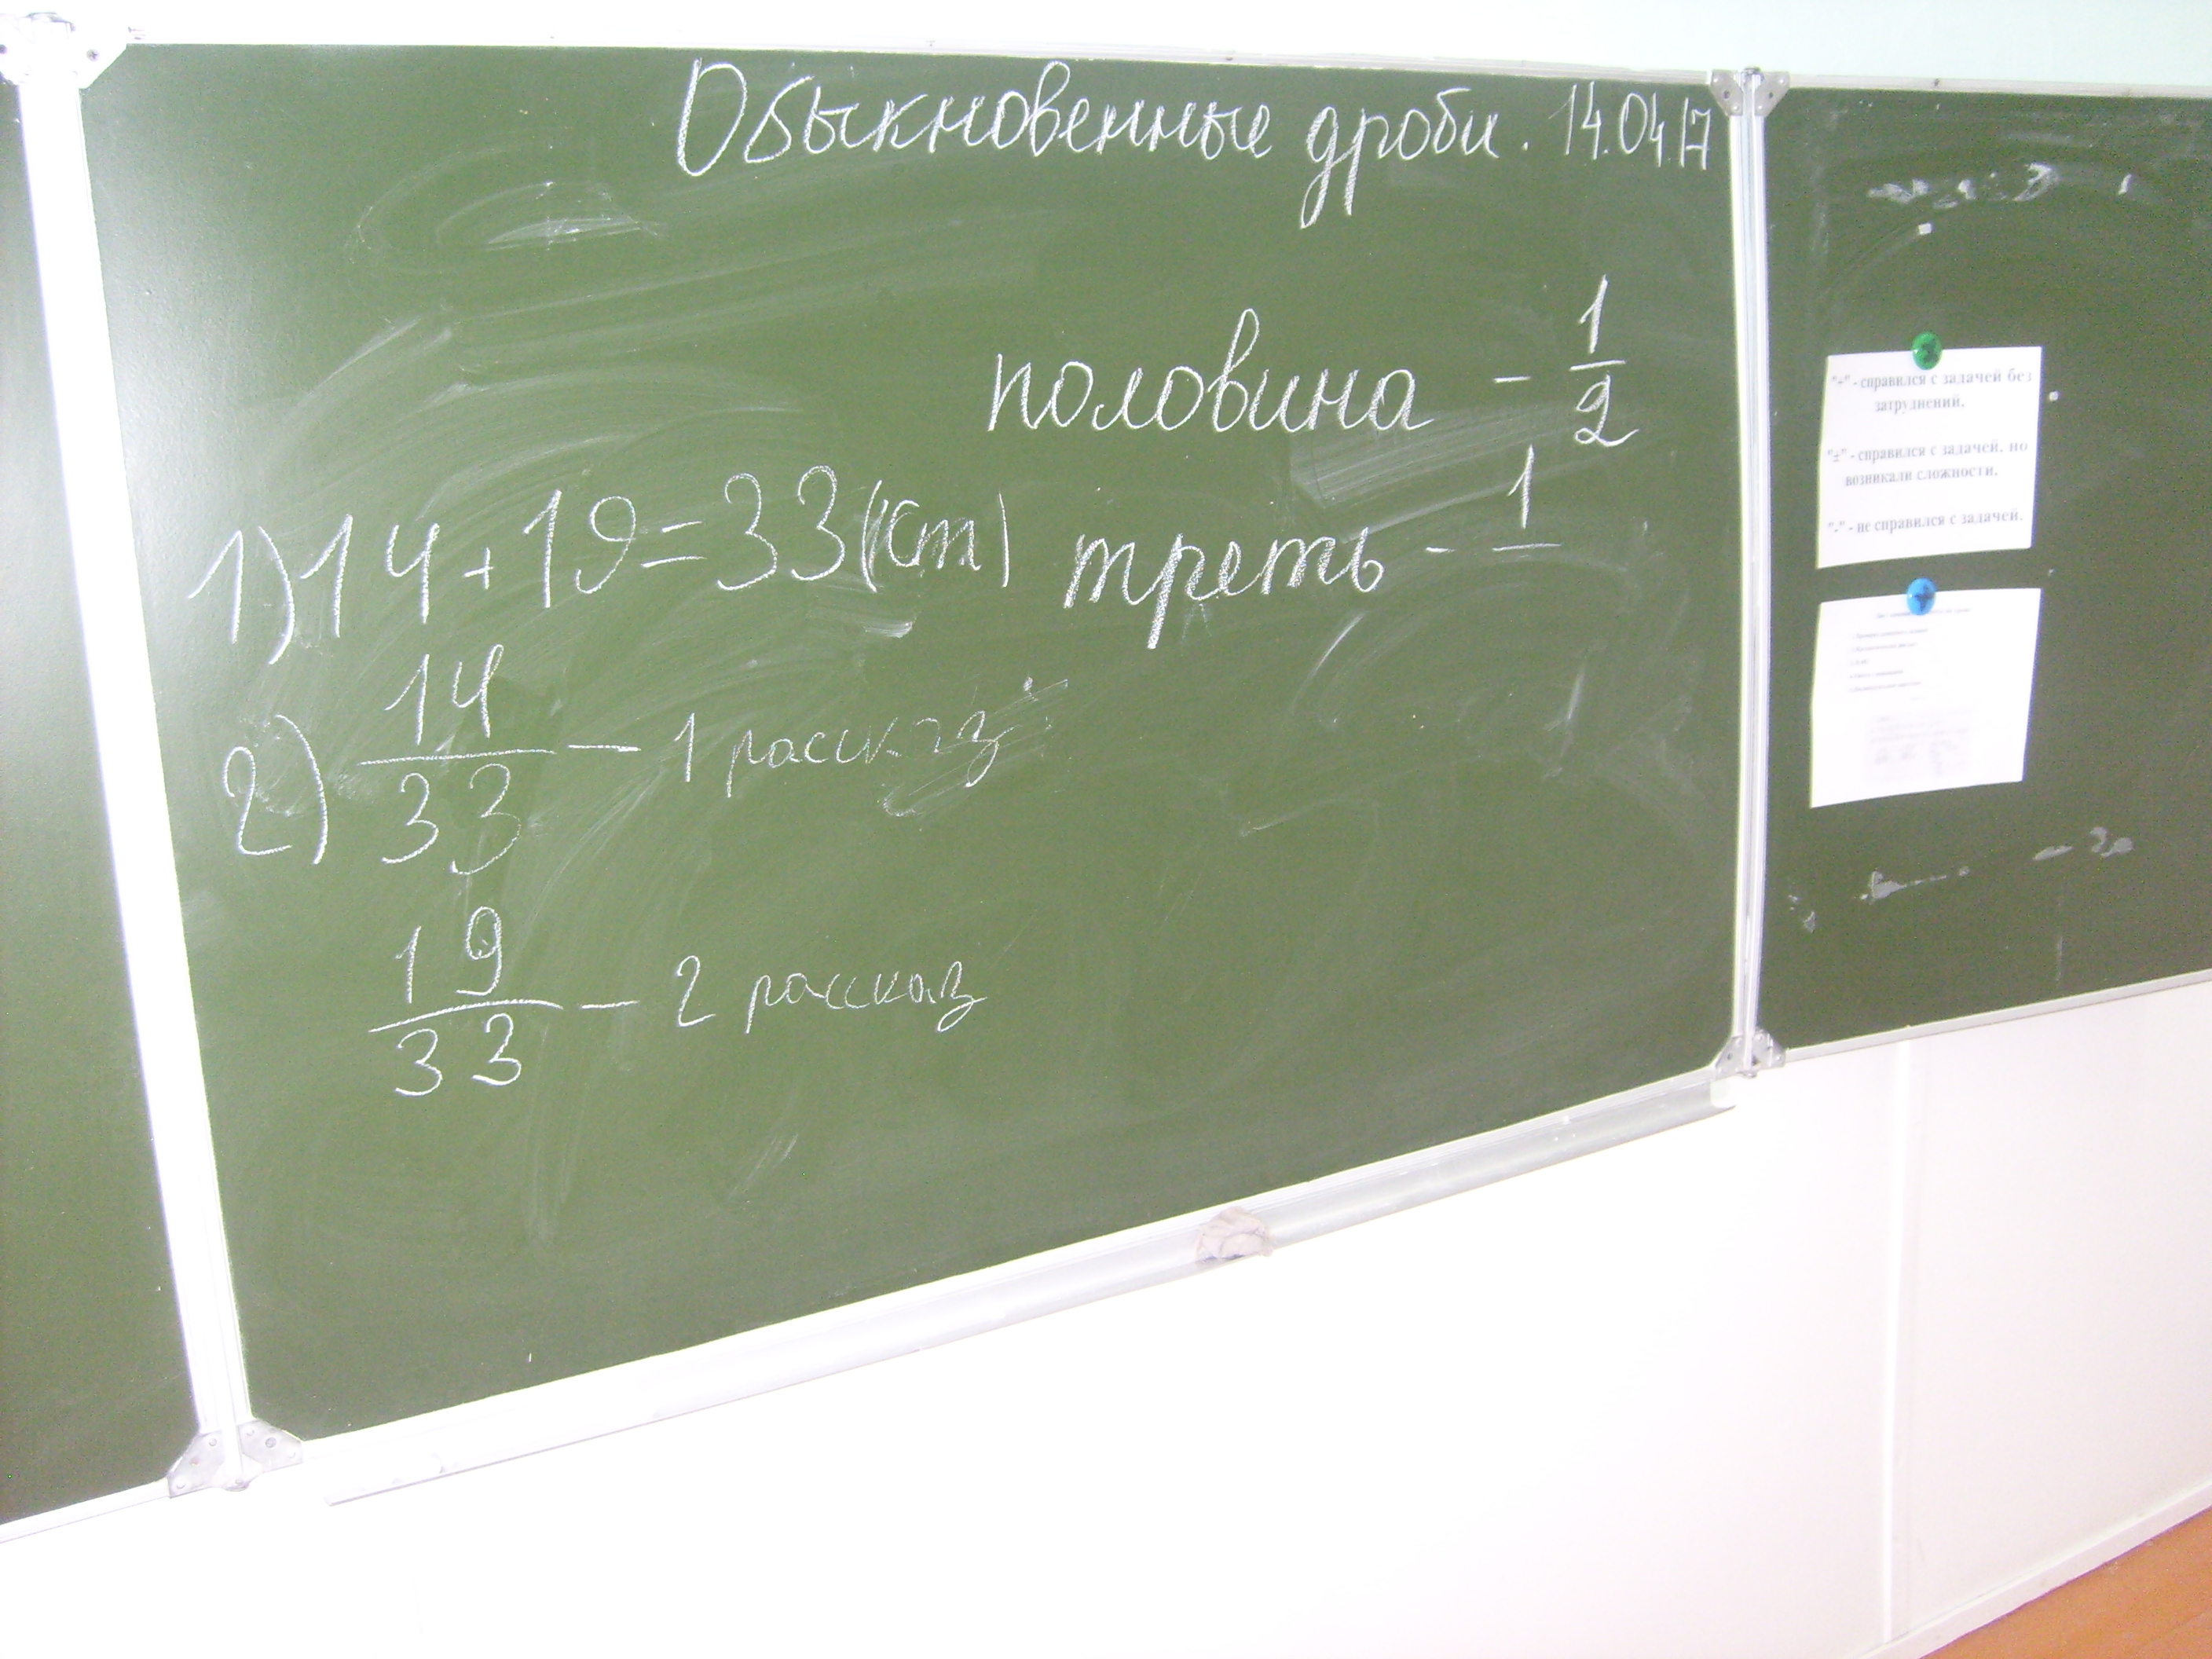 Обыкновенные дроби. 14.04.17
половина - 1/2
треть - 1/
1) 14 + 19 = 33 (ст)
2) 14/33 - 1 рассказ
19/33 - 2 рассказ
"+" - справился с задачей без
затруднений.
"±" - справился с задачей, но
возникали сложности.
"-" - не справился с задачей.